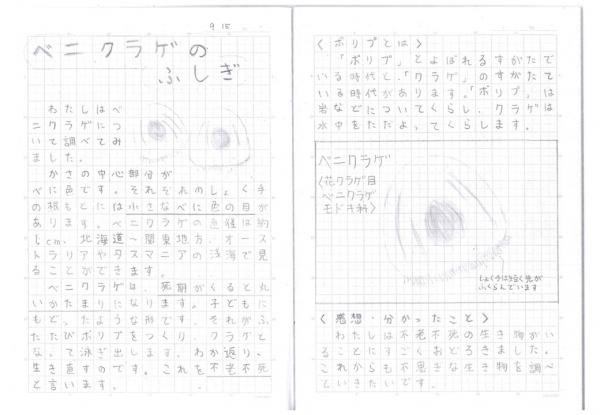 9 15
ベニクラゲの
ふしぎ
わたしはベ
ニクラゲにつ
いて調べてみ
ました。
かさの中心部分が
べに色です。それぞれのしょく手
の根もとには小さなべに色の目が
あります。ベニクラゲの直径は約
1cm、北海道〜関東地方、オース
トラリアやタスマニアの浅海で見
ることができます。
ベニクラゲは、死期がくると丸
いかたまりになります。子どもに
もどったような形です。それがふ
たたびポリプをつくり、クラゲと
なって泳ぎ出します。わか返り、
生き直すのです。これを不老不死
と言います。
〈ポリプとは〉
「ポリプ」とよばれるすがたで
いる時代と、「クラゲ」のすがたで
いる時代があります。「ポリプ」は
岩などについてくらし、クラゲは
水中をただよってくらします。
ベニクラゲ
〈花クラゲ目
ベニクラゲ
モドキ科〉
しょく手は短く先が
ふくらんでいます
〈感想・分かったこと〉
わたしは不老不死の生き物がい
ることにすごくおどろきました。
これからも不思きな生き物を調べ
ていきたいです。